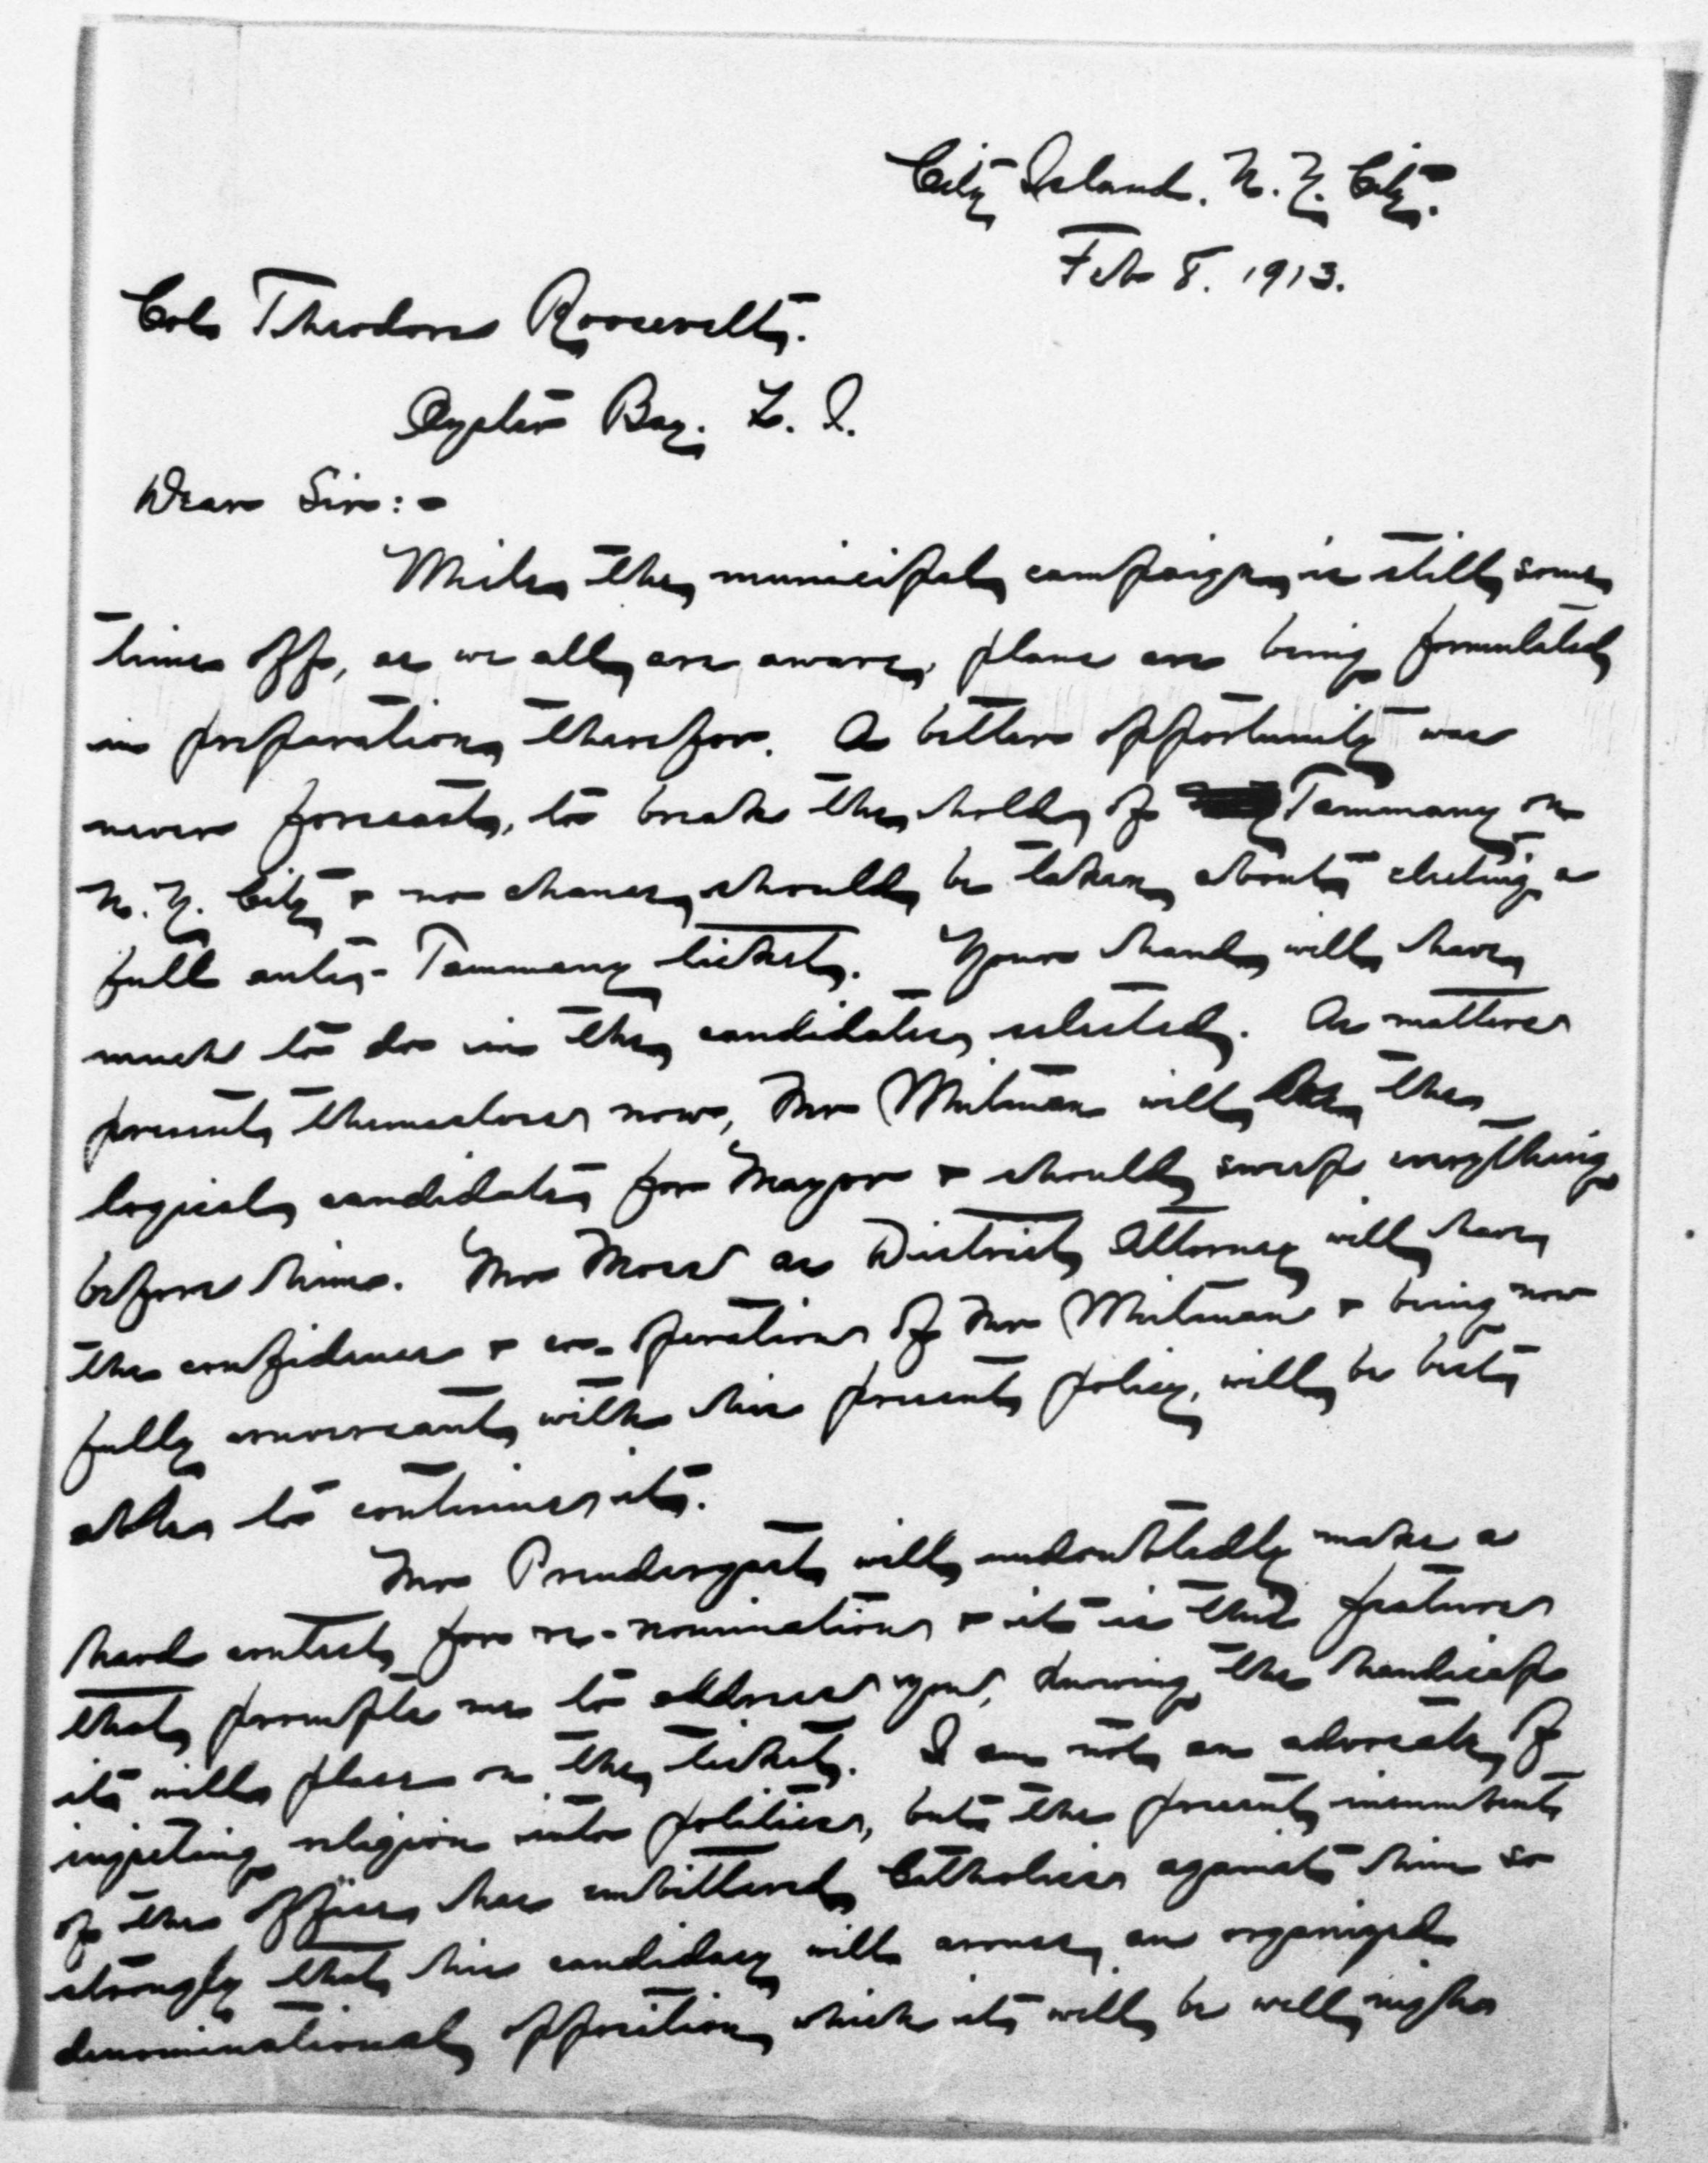 City Island. N. Y. City.
Feb 8. 1913.
Col Theodore Roosevelt.
Oyster Bay. L. I.
Dear Sir:-
While the municipal campaign is still some
time off, as we all are aware, plans are being formulated
in preparation therefor. A better opportunity was
never forecast, to break the hold of Tammany on
N. Y. City & no chance should be taken about electing a
full anti-Tammany ticket. Your hand will have
much to do in the candidates selected. As matters
present themselves now, Mr Whitman will be the
logical candidate for Mayor & should sweep everything
before him. Mr Moss as District Attorney will have
the confidence & co-operation of Mr Whitman & being now
fully conversant with his present policy, will be best
able to continue it.
Mr Prendergast will undoubtedly make a
hard contest for re-nomination & it is this feature
that prompts me to address you, knowing the handicap
it will place on the ticket. I am not an advocate of
injecting religion into politics, but the present incumbent
of the office has embittered Catholics against him so
strongly that his candidacy will arouse an organized
denominational opposition which it will be well nigh